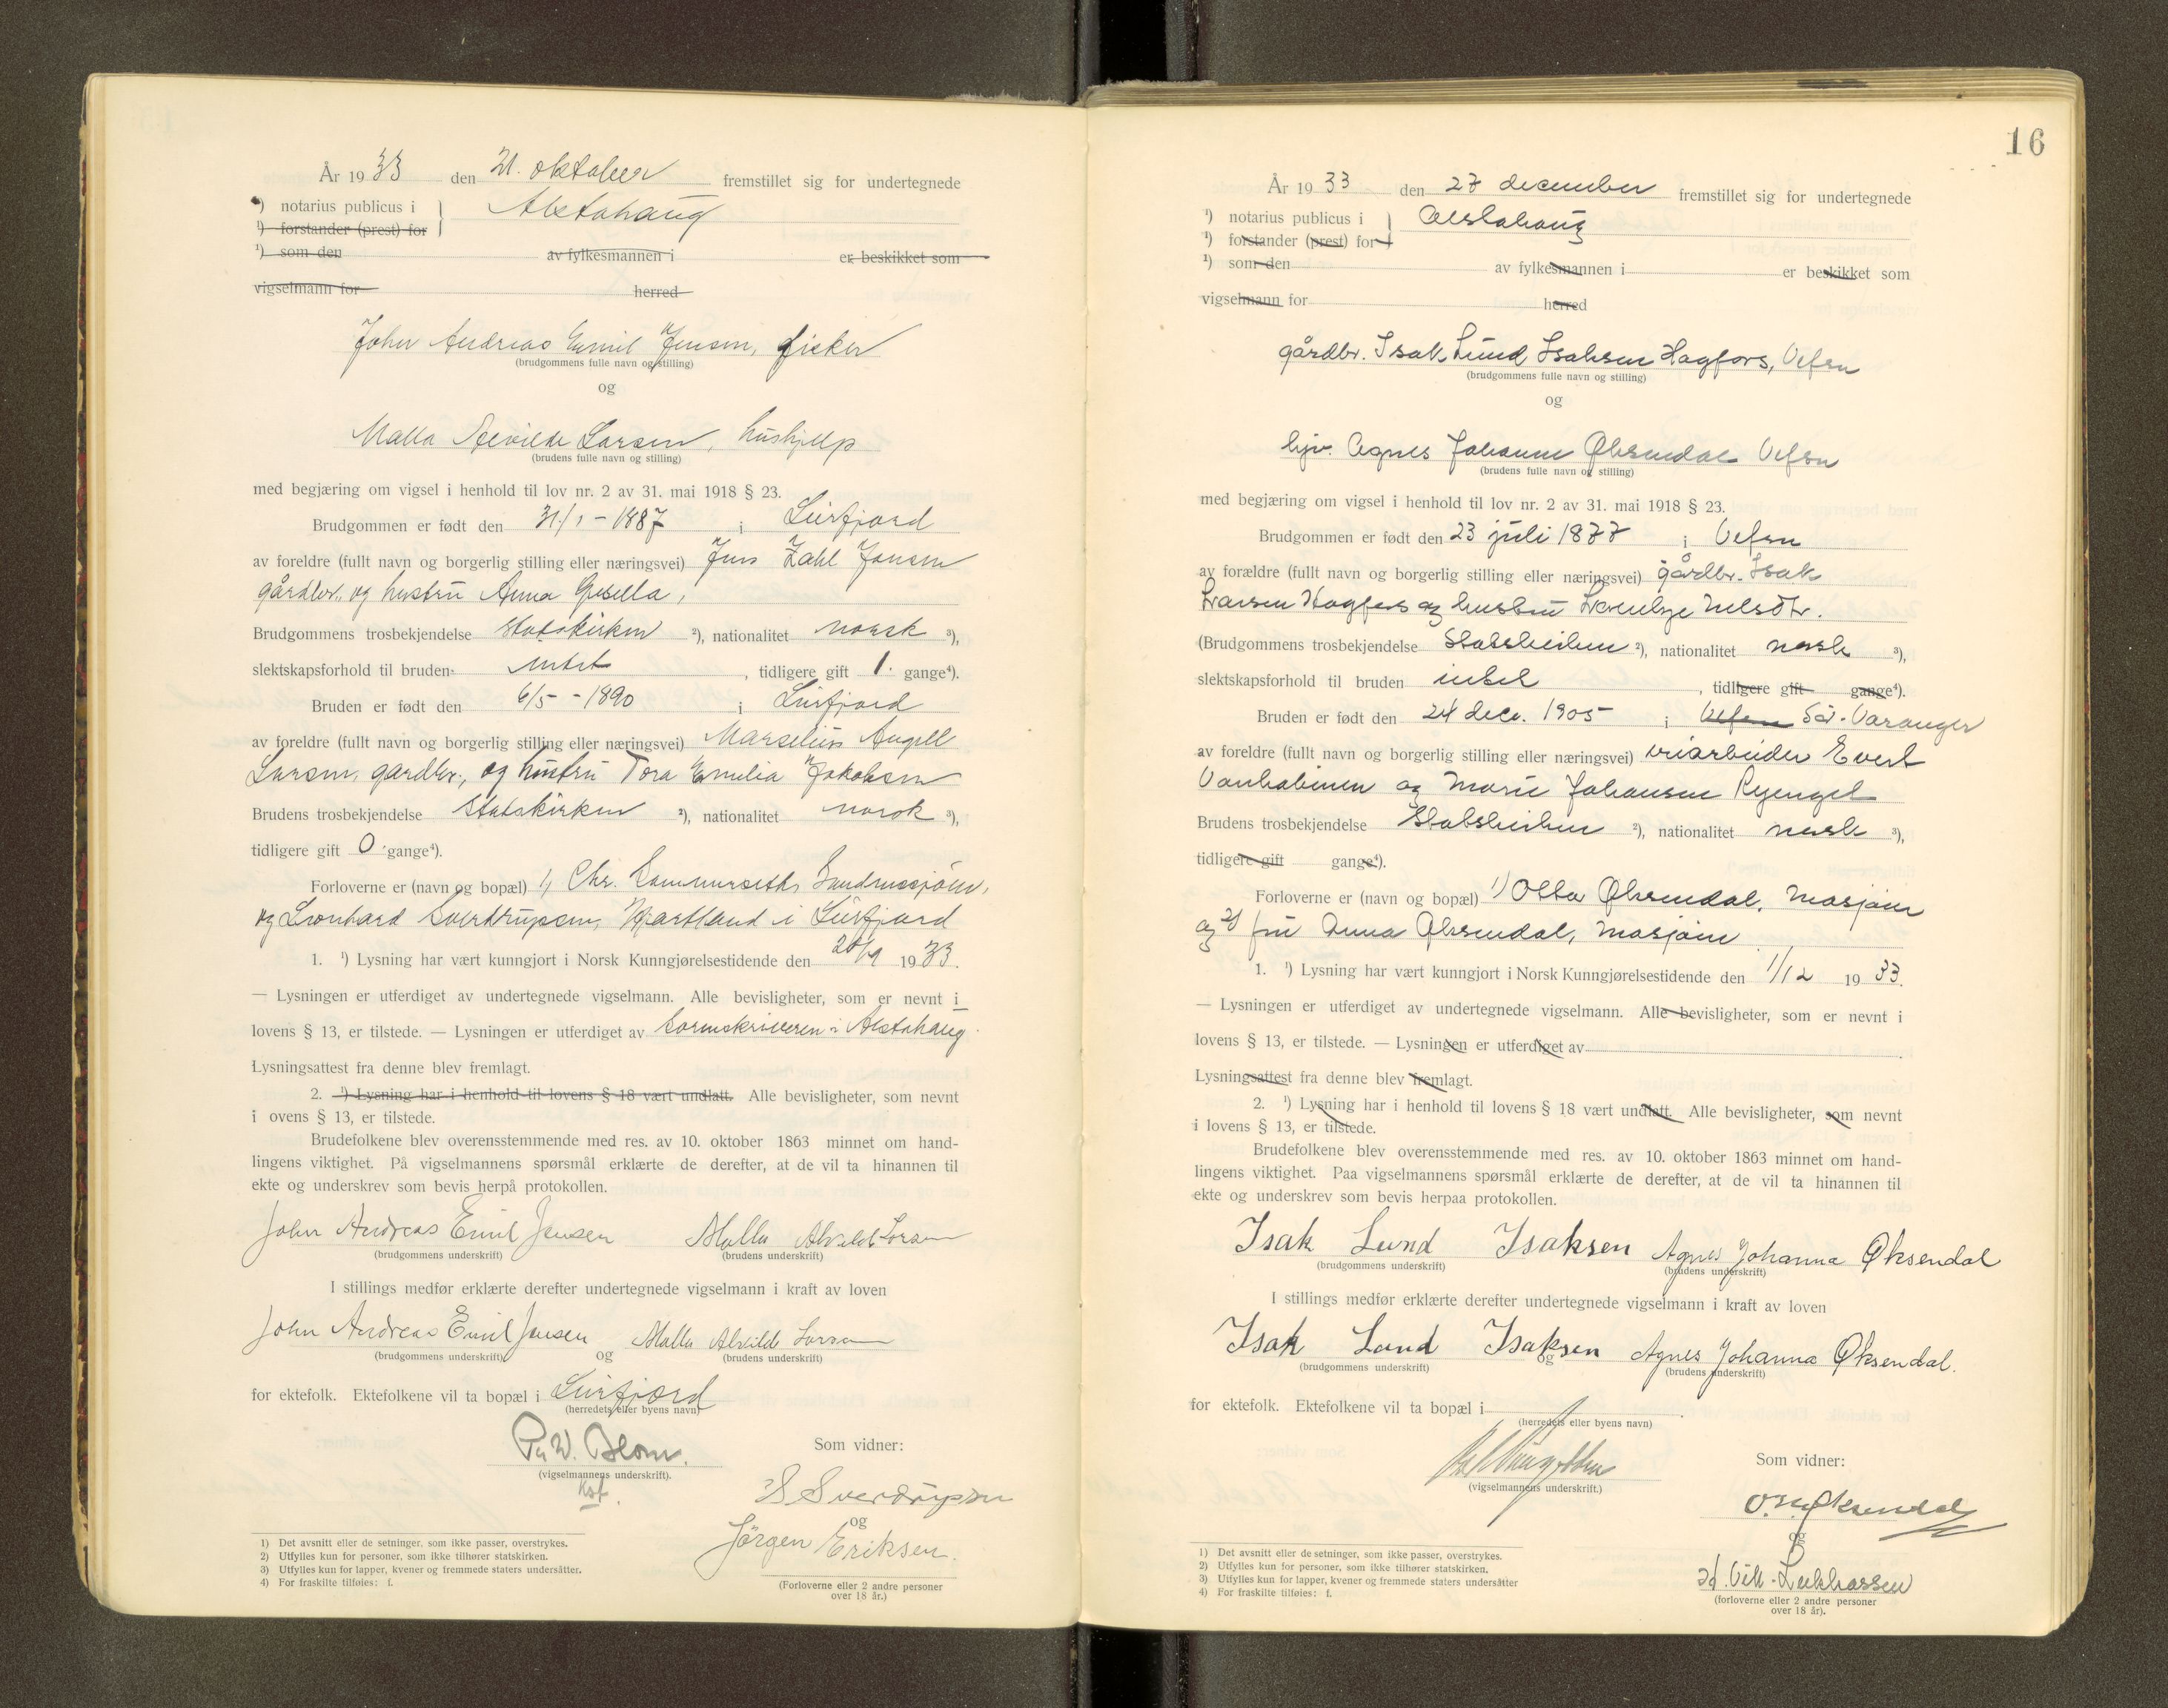 År 19 33 den 21. oktober fremstillet sig for undertegnede
¹) notarius publicus i } Alstahaug
¹) forstander (prest) for
¹) som den av fylkesmannen i er beskikket som
vigselmann for herred
John Andreas Emil Jensen, fisker
(brudgommens fulle navn og stilling)
og
Malla Alvilde Larsen, hushjelp
(brudens fulle navn og stilling)
med begjæring om vigsel i henhold til lov nr. 2 av 31. mai 1918 § 23.
Brudgommen er født den 31/1 - 1887 i Leirfjord
av foreldre (fullt navn og borgerlig stilling eller næringsvei) Jens Zahl Jensen
gårdbr. og hustru Anna Gisella,
Brudgommens trosbekjendelse Statskirken ²), nationalitet norsk ³),
slektskapsforhold til bruden intet, tidligere gift 1. gange⁴).
Bruden er født den 6/5 - 1890 i Leirfjord
av foreldre (fullt navn og borgerlig stilling eller næringsvei) Marselius Angell
Larsen, gardbr., og hustru Tora Emilia Jakobsen
Brudens trosbekjendelse Statskirken ²), nationalitet norsk ³),
tidligere gift 0 gange⁴).
Forloverne er (navn og bopæl) 1, Chr. Sandnessjøen,
og Leonhard Sverdrupsen, Hjartland i Leirfjord
1. ¹) Lysning har vært kunngjort i Norsk Kunngjørelsestidende den 20/9 19 33.
— Lysningen er utferdiget av undertegnede vigselmann. Alle bevisligheter, som er nevnt i
lovens § 13, er tilstede. — Lysningen er utferdiget av Sorenskriveren i Alstahaug
Lysningsattest fra denne blev fremlagt.
2. ¹) Lysning har i henhold til lovens § 18 vært undlatt. Alle bevisligheter, som nevnt
i ovens § 13, er tilstede.
Brudefolkene blev overensstemmende med res. av 10. oktober 1863 minnet om hand-
lingens viktighet. På vigselmannens spørsmål erklærte de derefter, at de vil ta hinannen til
ekte og underskrev som bevis herpå protokollen.
John Andreas Emil Jensen Malla Alvilde Larsen
(brudgommens underskrift) (brudens underskrift)
I stillings medfør erklærte derefter undertegnede vigselmann i kraft av loven
John Andreas Emil Jensen og Malla Alvilde Larsen
(brudgommens underskrift) (brudens underskrift)
for ektefolk. Ektefolkene vil ta bopæl i Leirfjord
(herredets eller byens navn)
Per W. Blom.
(vigselmannens underskrift).
kst.
Som vidner:
S Sverdrupsen
og
Jørgen Eriksen.
(Forloverne eller 2 andre personer
over 18 år.)
1) Det avsnitt eller de setninger. som ikke passer, overstrykes.
2) Utfylles kun for personer, som ikke tilhører statskirken.
3) Utfylles kun for lapper, kvener og fremmede staters undersåtter.
4) For fraskilte tilføies: f.
16
År 19 33 den 27 december fremstillet sig for undertegnede
¹) notarius publicus i } Alstahaug
¹) forstander (prest) for
¹) som den av fylkesmannen i er beskikket som
vigselmann for herred
gårdbr. Isak Lund Isaksen Hagfors, Vefsn
(brudgommens fulle navn og stilling)
og
Agnes Johanne Øksendal Vefsn
(brudens fulle navn og stilling)
med begjæring om vigsel i henhold til lov nr. 2 av 31. mai 1918 § 23.
Brudgommen er født den 23 juli 1877 i Vefsn
av forældre (fullt navn og borgerlig stilling eller næringsvei) gårdbr. Isak
Larsen Hagfors og hustru Nelsdtr.
(Brudgommens trosbekjendelse Statskirken ²), nationalitet norsk ³),
slektskapsforhold til bruden intet, tidligere gift gange⁴).
Bruden er født den 24 dec. 1905 i Vefsn Sør-Varanger
av foreldre (fullt navn og borgerlig stilling eller næringsvei) Evert
og Marie Johansen
Brudens trosbekjendelse Statskirken ²), nationalitet norsk ³),
tidligere gift gange⁴).
Forloverne er (navn og bopæl) 1) Otto Øksendal, Mosjøen
og 2) fru Anna Øksendal, Mosjøen
1. ¹) Lysning har vært kunngjort i Norsk Kunngjørelsestidende den 1/12 19 33.
— Lysningen er utferdiget av undertegnede vigselmann. Alle bevisligheter, som er nevnt i
lovens § 13, er tilstede. — Lysningen er utferdiget av
Lysningsattest fra denne blev fremlagt.
2. ¹) Lysning har i henhold til lovens § 18 vært undlatt. Alle bevisligheter, som nevnt
i lovens § 13, er tilstede.
Brudefolkene blev overensstemmende med res. av 10. oktober 1863 minnet om hand-
lingens viktighet. Paa vigselmannens spørsmål erklærte de derefter, at de vil ta hinannen til
ekte og underskrev som bevis herpaa protokollen.
Isak Lund Isaksen Agnes Johanna Øksendal
(brudgommens underskrift) (brudens underskrift)
I stillings medfør erklærte derefter undertegnede vigselmann i kraft av loven
Isak Lund Isaksen og Agnes Johanna Øksendal.
(brudgommens underskrift) (brudens underskrift)
for ektefolk. Ektefolkene vil ta bopæl i
(herredets eller byens navn)
(vigselmannens underskrift.)
Som vidner:
Øksendal
og
(forloverne eller 2 andre personer
over 18 år).
1) Det avsnitt eller de setninger, som ikke passer, overstrykes.
2) Utfylles kun for personer, som ikke tilhører statskirken.
3) Utfylles kun for lapper, kvener og fremmede staters undersåtter
4) For fraskilte tilføies: f.